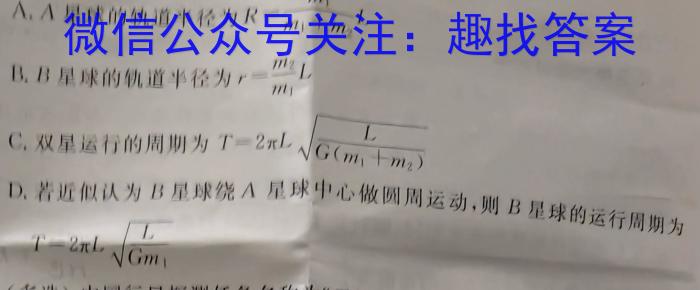 A. A 星球的轨道半径为 R=
微信公众号关注：趣找答案
B. B 星球的轨道半径为 r=\frac{m_2}{m_1}L
C. 双星运行的周期为 T=2πL\sqrt{\frac{L}{G(m_1+m_2)}}
D. 若近似认为 B 星球绕 A 星球中心做圆周运动，则 B 星球的运行周期为
T=2πL\sqrt{\frac{L}{Gm_1}}